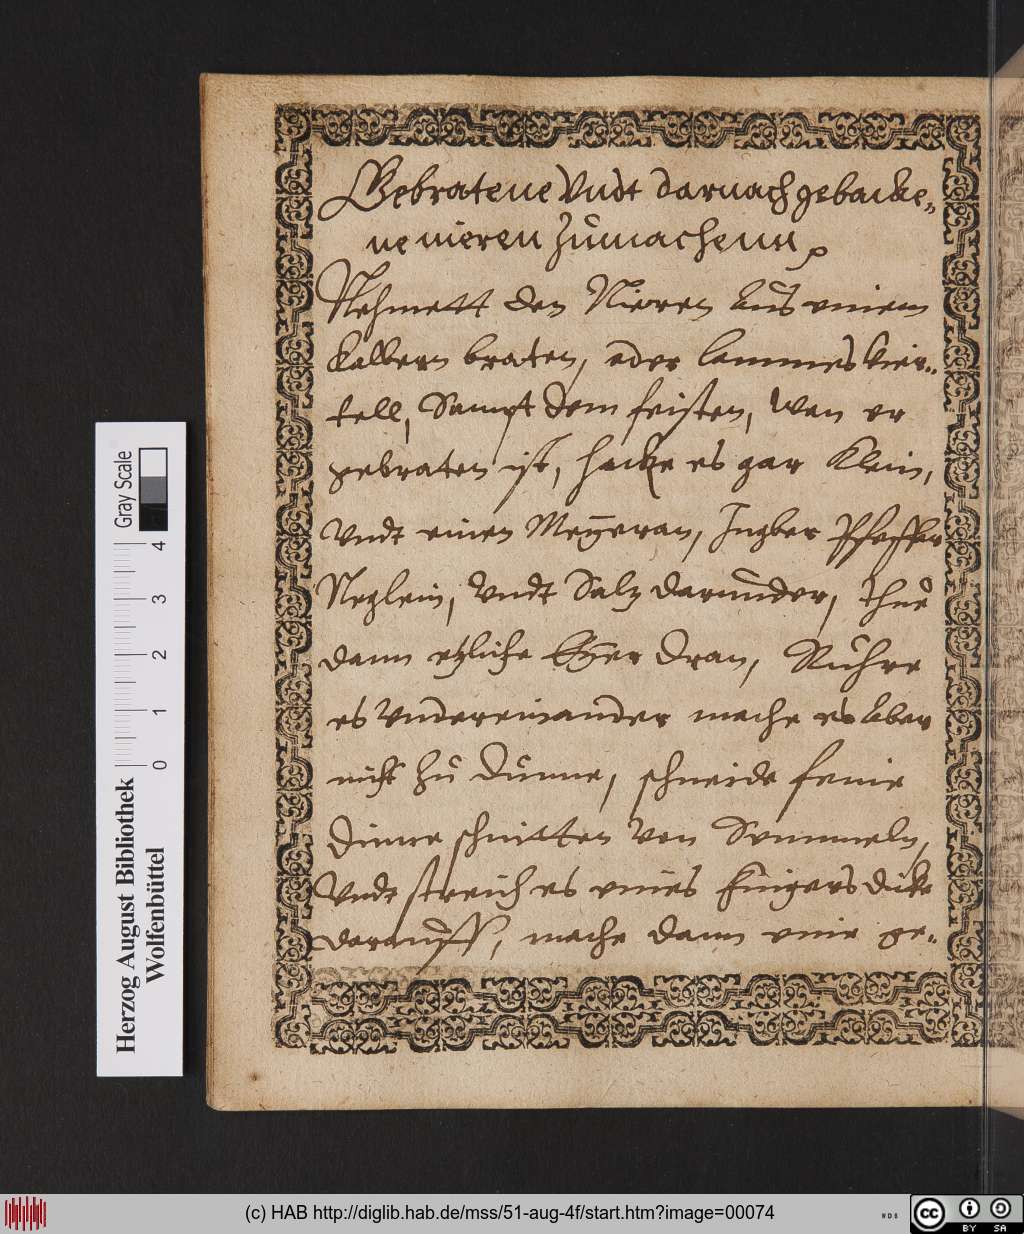 Gebratene Vndt darnach gebacke„
ne nieren Zůmachenn
Nehmett den Nieren aus einem
kalbern braten, oder lammes vier„
tell, Sampt dem feisten, wan er
gebraten ist, hacke es gar klein,
Vndt einen Meÿeran, Ingber Pfeffer
Neglein, Vndt Saltz darunder, thue
dann etzliche Eÿer dran, Rühre
es Vndereinander mache es aber
nicht zů dünne, schneide feine
dünne schnitten von Semmeln,
Vndt streich es eines fingers dicke
darauff, mache dann eine ge„
Herzog August Bibliothek
Wolfenbüttel
Gray Scale
0 1 2 3 4
(c) HAB http://diglib.hab.de/mss/51-aug-4f/start.htm?image=00074
WDB
cc BY SA